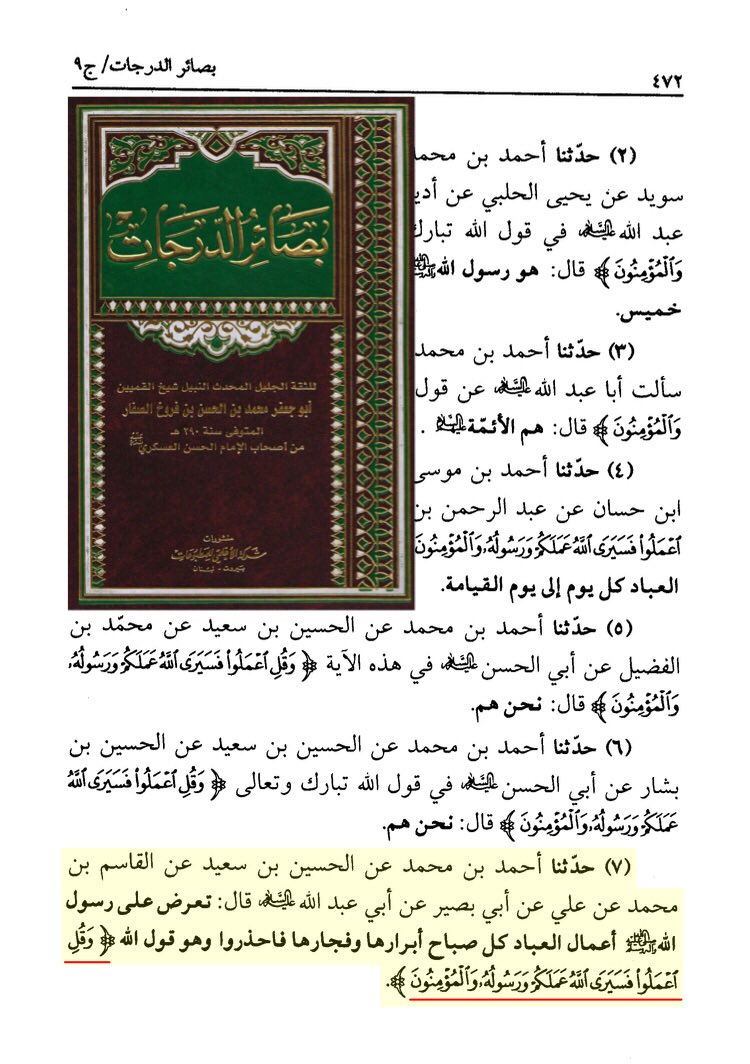 بصائر الدرجات/ ج٩
٤٧٢
بَصَائِرُ الدَّرَجَاتِ
للثقة الجليل المحدث النبيل شيخ القميين
أبو جعفر محمد بن الحسن بن فروخ الصفار
المتوفى سنة ٢٩٠ هـ
من أصحاب الإمام الحسن العسكري عليه السلام
منشورات
شركة الأعلمي للمطبوعات
بيروت - لبنان
(٢) حدّثنا أحمد بن محمد
سويد عن يحيى الحلبي عن
عبد الله عليه السلام في قول الله تبارك
وَٱلْمُؤْمِنُونَ﴾ قال: هو رسول الله ﷺ
خميس.
(٣) حدّثنا أحمد بن محمد
سألت أبا عبد الله عليه السلام عن قول
وَٱلْمُؤْمِنُونَ﴾ قال: هم الأئمّة عليه السلام .
(٤) حدّثنا أحمد بن موسى
ابن حسان عن عبد الرحمن بن
ٱعْمَلُوا۟ فَسَيَرَى ٱللَّهُ عَمَلَكُمْ وَرَسُولُهُۥ وَٱلْمُؤْمِنُونَ
العباد كل يوم إلى يوم القيامة.
(٥) حدّثنا أحمد بن محمد عن الحسين بن سعيد عن محمّد بن
الفضيل عن أبي الحسن عليه السلام في هذه الآية ﴿وَقُلِ ٱعْمَلُوا۟ فَسَيَرَى ٱللَّهُ عَمَلَكُمْ وَرَسُولُهُۥ
وَٱلْمُؤْمِنُونَ﴾ قال: نحن هم.
(٦) حدّثنا أحمد بن محمد عن الحسين بن سعيد عن الحسين بن
بشار عن أبي الحسن عليه السلام في قول الله تبارك وتعالى ﴿وَقُلِ ٱعْمَلُوا۟ فَسَيَرَى ٱللَّهُ
عَمَلَكُمْ وَرَسُولُهُۥ وَٱلْمُؤْمِنُونَ﴾ قال: نحن هم.
(٧) حدّثنا أحمد بن محمد عن الحسين بن سعيد عن القاسم بن
محمد عن علي عن أبي بصير عن أبي عبد الله عليه السلام قال: تعرض على رسول
الله ﷺ أعمال العباد كل صباح أبرارها وفجارها فاحذروا وهو قول الله ﴿وَقُلِ
ٱعْمَلُوا۟ فَسَيَرَى ٱللَّهُ عَمَلَكُمْ وَرَسُولُهُۥ وَٱلْمُؤْمِنُونَ﴾.